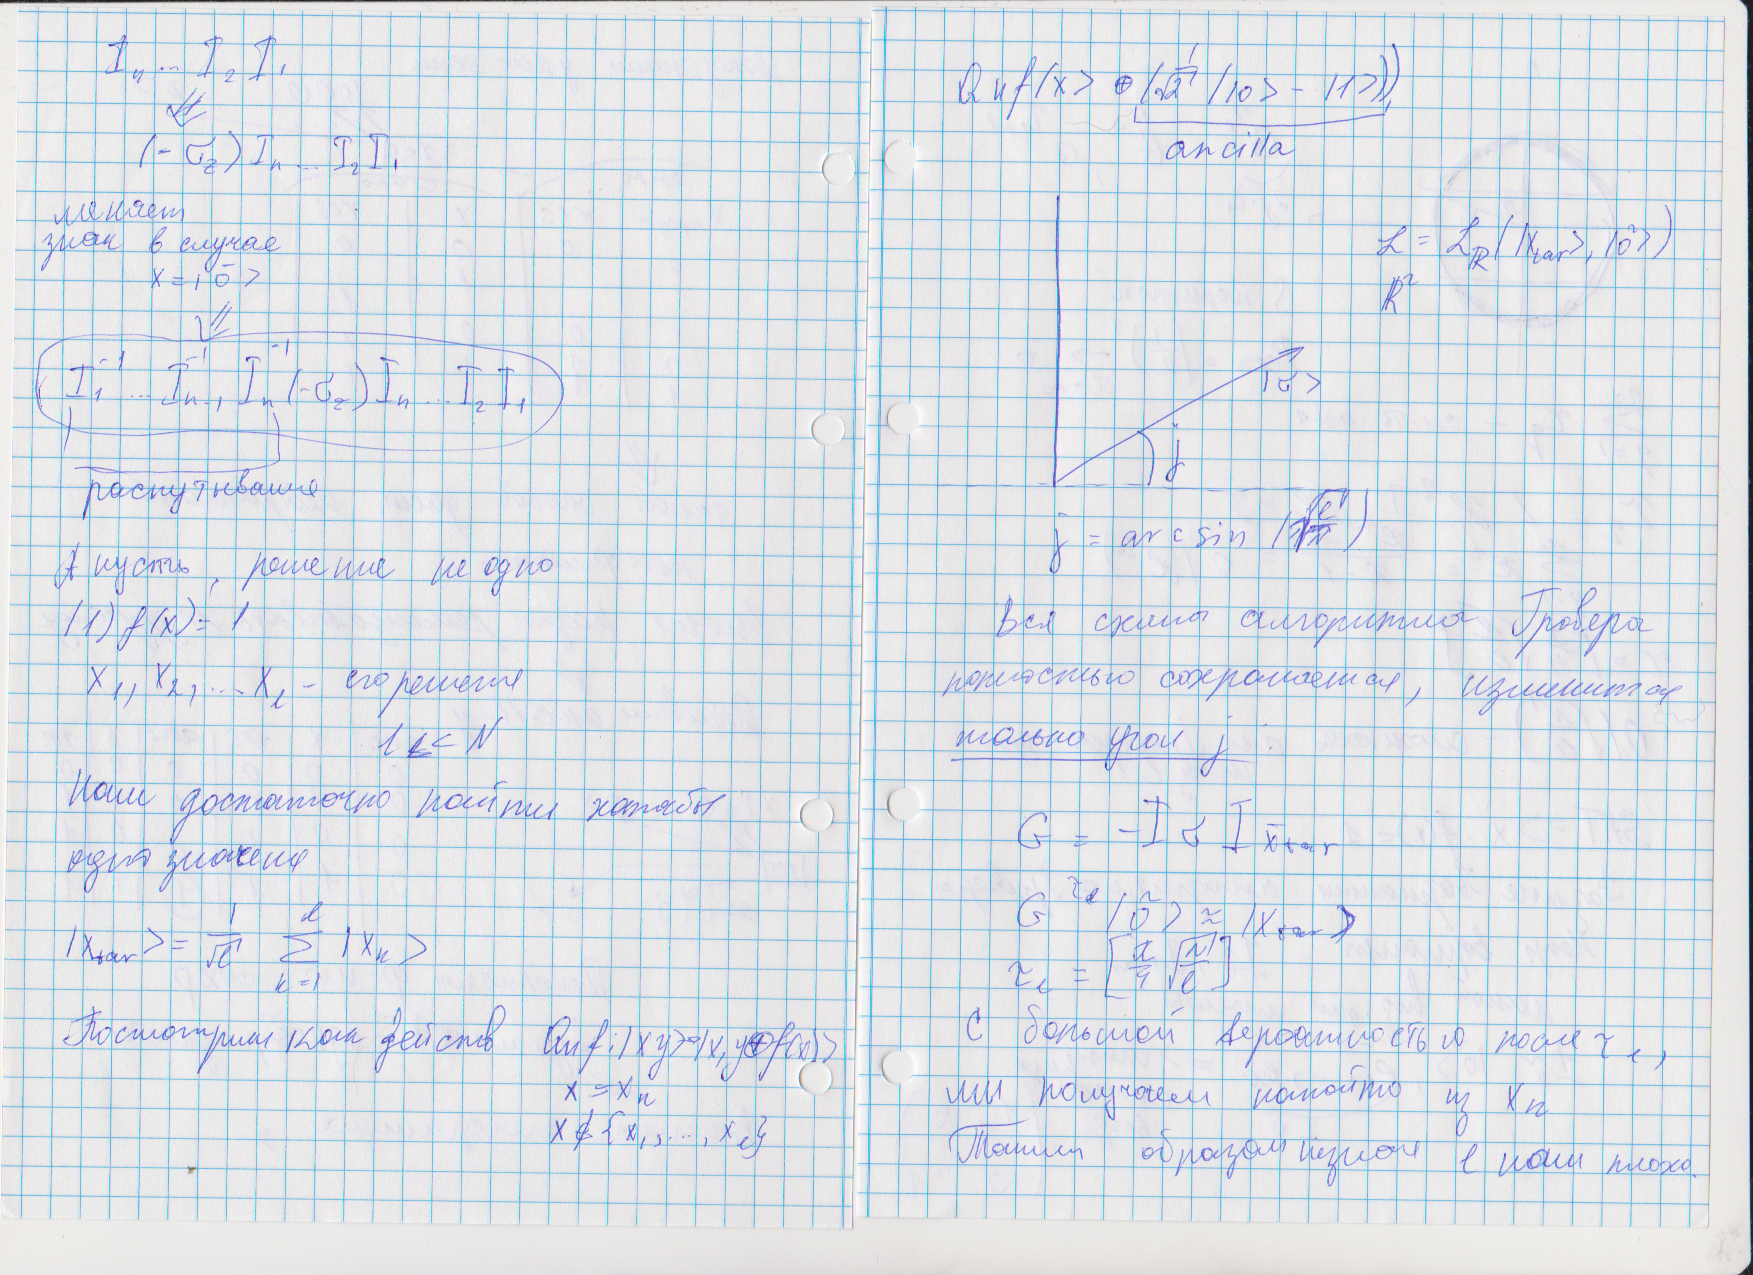 I_n ... I_2 I_1
⇓
(-σ_z) I_n ... I_2 I_1
меняет
знак в случае
x = |0̄>
⇓
I_1^{-1} ... I_{n-1}^{-1} I_n^{-1} (-σ_z) I_n ... I_2 I_1
распутывание
А пусть, решение не одно
(1) f(x) = 1
x_1, x_2, ... x_l - его решения
l << N
Нам достаточно найти хотябы
одно значение
|x_tar> = 1/√l Σ_{k=1}^{l} |x_k>
Посмотрим как действ Qu f: |x y> → |x, y⊕f(x)>
x = x_k
x ∉ {x_1, ..., x_l}
Qu f |x> ⊕ (1/√2 (|0> - |1>))
ancilla
L = L_R (|x_tar>, |õ>)
R^2
|õ>
j
j = arcsin (√(l/N))
Вся схема алгоритма Гровера
полностью сохраняется, изменится
только угол j.
G = -I_õ I_{x̄tar}
G^{τ_l} |õ> ≈ |x_tar>
τ_l = [π/4 √(N/l)]
С большой вероятностью после τ_l,
мы получаем какойто из x_k
Таким образом незная l нам плохо.